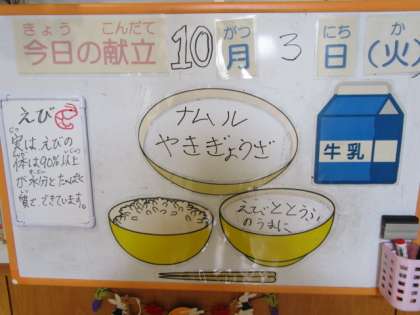 きょう こんだて がつ にち か
今日の献立 10月 3日 (火)
えび
実はえびの
体は90%以上
が水分とたんぱく
質でできています。
ナムル
やきぎょうざ
牛乳
えびととうふ
のうまに